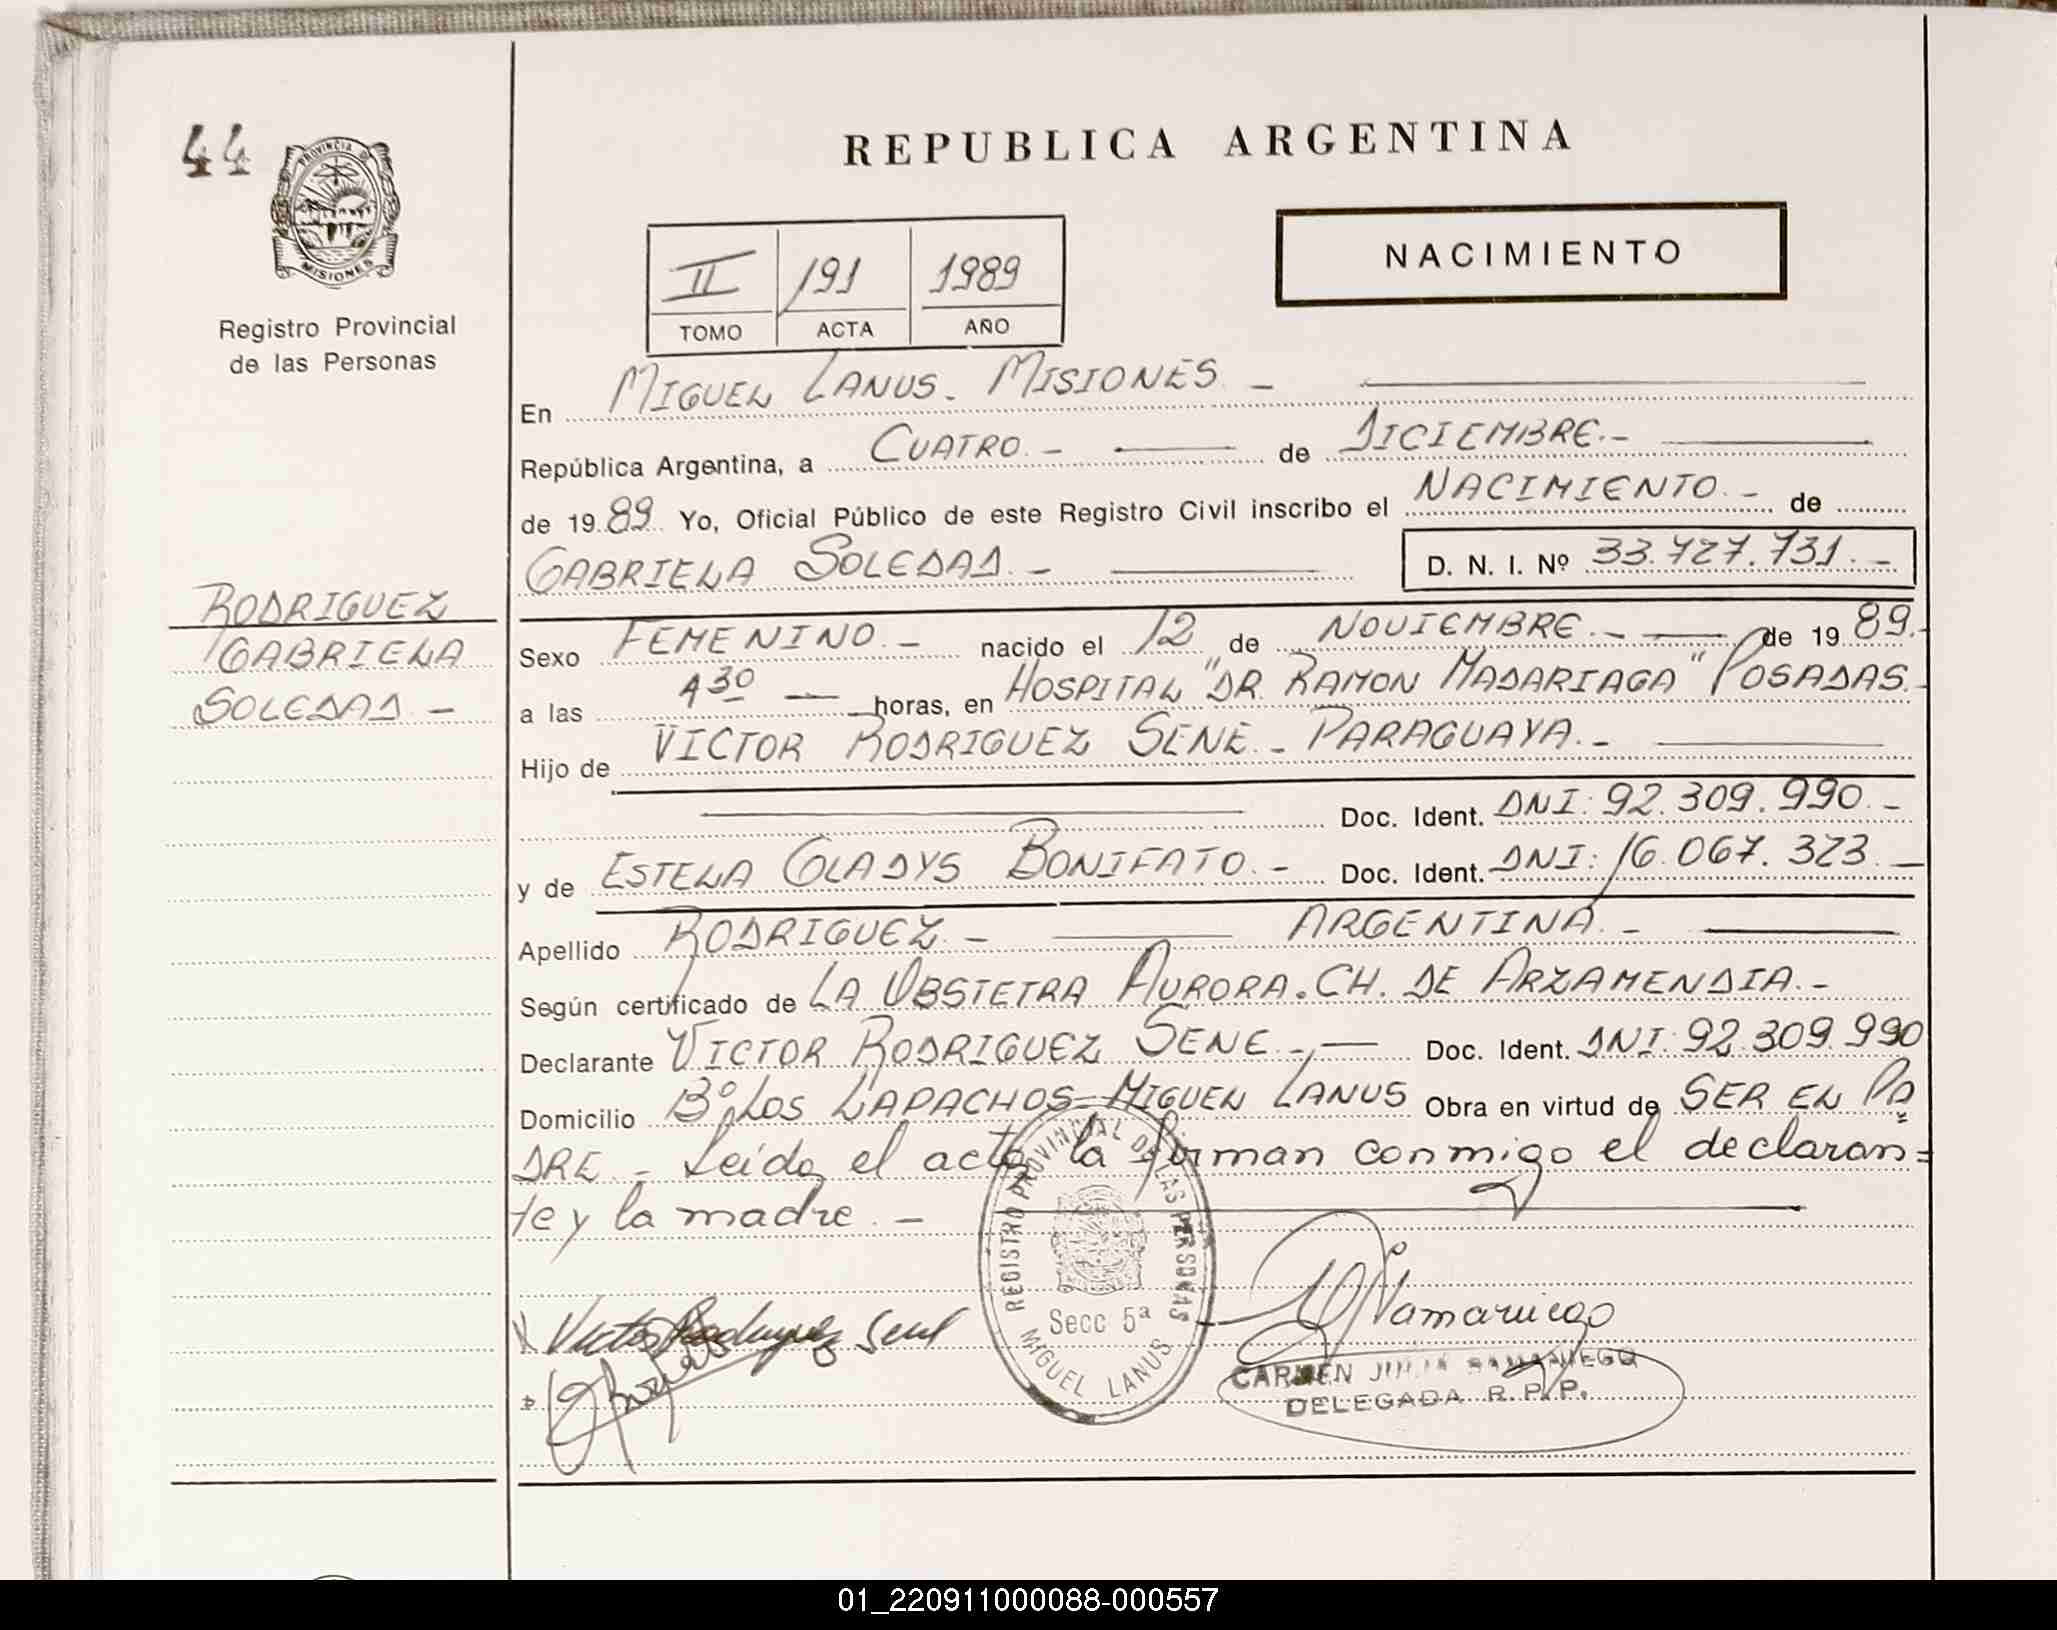 44
PROVINCIA DE
MISIONES
Registro Provincial
de las Personas
RODRIGUEZ
GABRIELA
SOLEDAD. -
REPUBLICA ARGENTINA
NACIMIENTO
II 191 1989
TOMO ACTA AÑO
En MIGUEL LANUS. MISIONES. -
República Argentina, a CUATRO. - de DICIEMBRE. -
de 19 89 Yo, Oficial Público de este Registro Civil inscribo el NACIMIENTO. - de
GABRIELA SOLEDAD. - D. N. I. Nº 33.727.731. -
Sexo FEMENINO. - nacido el 12 de NOVIEMBRE. - de 19 89. -
a las 4 30 - horas, en HOSPITAL "DR. RAMON MADARIAGA" POSADAS. -
Hijo de VICTOR RODRIGUEZ SENE. - PARAGUAYA. -
Doc. Ident. DNI: 92.309.990. -
y de ESTELA GLADYS BONIFATO. - Doc. Ident. DNI: 16.067.323. -
Apellido RODRIGUEZ. - ARGENTINA. -
Según certificado de LA OBSTETRA AURORA. CH. DE ARZAMENDIA. -
Declarante VICTOR RODRIGUEZ SENE. - Doc. Ident. DNI: 92.309.990
Domicilio Bº LOS LAPACHOS - MIGUEL LANUS Obra en virtud de SER EL PA
DRE. - Leida el acta la firman conmigo el declaran=
te y la madre. -
Victor Rodriguez Sene
REGISTRO PROVINCIAL DE LAS PERSONAS
Secc 5ª
MIGUEL LANUS
Samaniego
CARMEN JULIA SAMANIEGO
DELEGADA R. P. P.
01_220911000088-000557